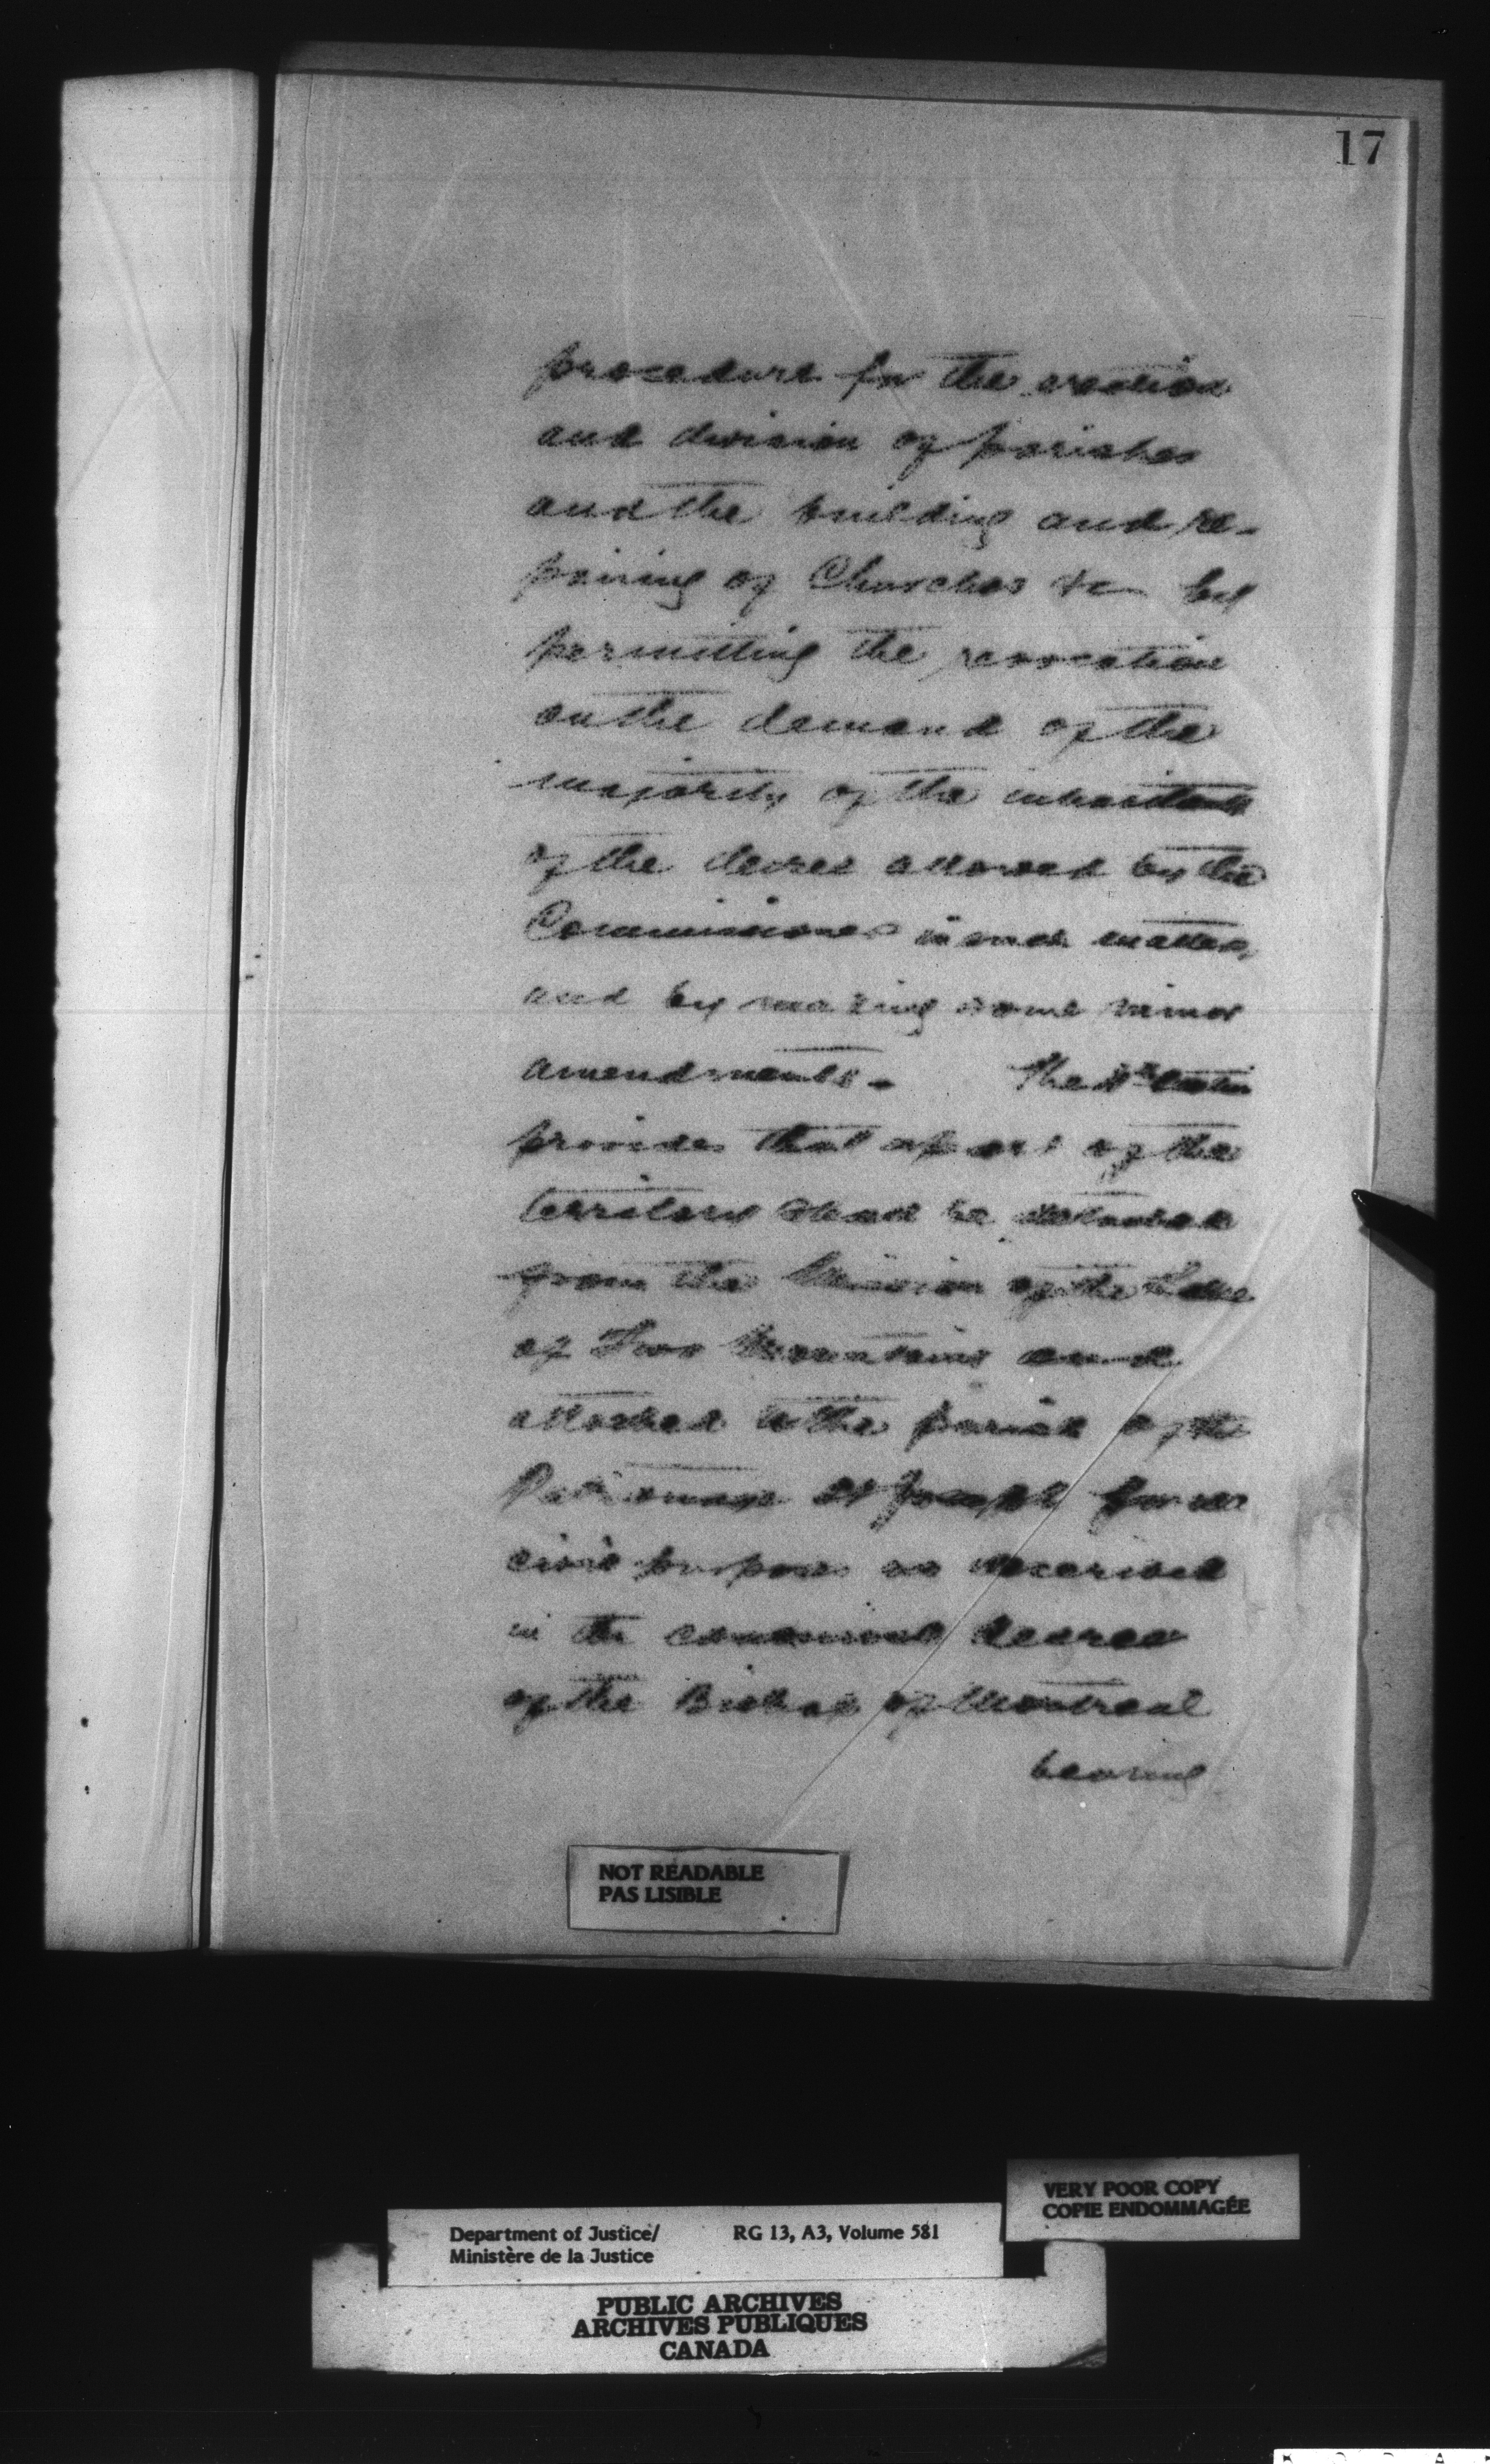 17
procedure for the erection
and division of parishes
and the building and re-
pairing of Churches &c by
permitting the revocation
on the demand of the
majority of the inhabitants
of the decree allowed by the
Commissioners in such matters,
and by making some minor
amendments - The section
provides that a part of the
territory shall be detached
from the Mission of the Lake
of Two Mountains and
attached to the parish of the
Patronage St Joseph for
civil purposes as described
in the canonical decree
of the Bishop of Montreal
bearing
NOT READABLE
PAS LISIBLE
VERY POOR COPY
COPIE ENDOMMAGÉE
Department of Justice/ RG 13, A3, Volume 581
Ministère de la Justice
PUBLIC ARCHIVES
ARCHIVES PUBLIQUES
CANADA